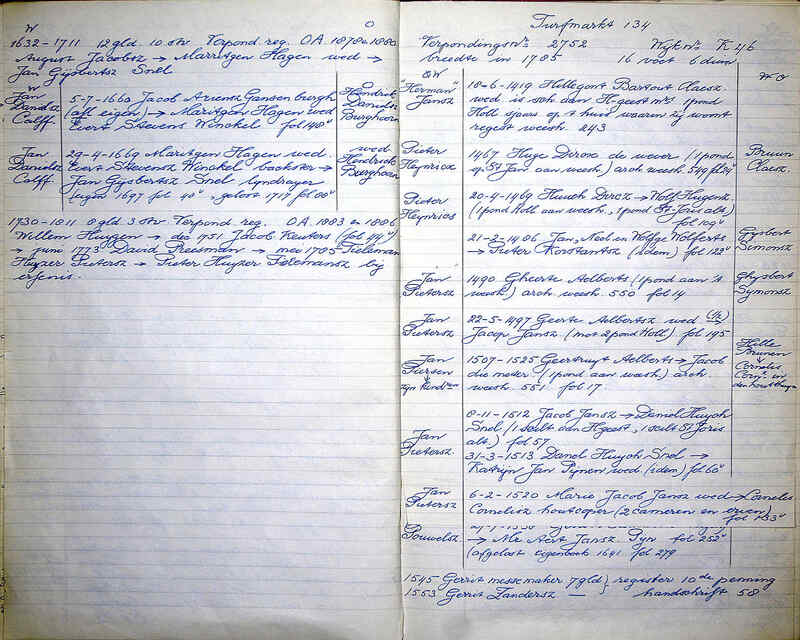 W O
1632 - 1711 12 gld. 10. stv Verpond. reg. O.A. 1878 en 1880
August Jacobsz → Marritgen Hagen wed →
Jan Gijsbertsz Snel
W
Jan
Danielsz
Calff
5-7-1660 Jacob Ariensz Gansenburgh
(afl eigen) → Maritgen Hagen wed
Evert Stevens Winckel fol 148v
O
Hendrick
Daniels
Burghoorn
Jan
Danielsz
Calff.
29-4-1669 Maritgen Hagen wed.
Evert Stevensz Winckel backster →
Jan Gysbertsz Snel lyndrayer
(eigen 1697 fol 40v - geloot 1717 fol 80v)
wed
Hendrick
Burghoorn
1730 - 1811 8 gld 3 stv Verpond reg. O.A. 1883 en 1886
Willem Huygen → dec 1751 Jacob Reuters (fol 141v)
→ juni 1773 David Reeuman → mei 1785 Tieleman
Huyzer Pietersz → Pieter Huyzer Tielemansz bij
erfenis.
Turfmarkt 134
Verpondingsnr. 2752 Wijk nr. K 46
breedte in 1785 16 voet 6 duim
OW
"Herman"
Jansz
18-6-1419 Hillegont Bartout Claesz.
wed is sch aan H-geest mrs 1 pond
Holl sjaars op t huis waarin zij woont
regest weesh 243
W O
Pieter
Heynricz
1467 Huge Dircx de wever (1 pond
op St Jan aan weesh) arch weesh. 549 fol 24v
Bruun
Claesz.
Pieter
Heynrics
20-4-1469 Huuch Dircz → Wolf Hugenz.
(1 pond Holl aan weesh, 1 pond St Joris alt)
fol 109v
21-2-1486 Jan, Neel en Wolfge Wolferts
→ Pieter Korstantsz (idem) fol 122v
Gysbert
Simonsz
Jan
Pietersz
1490 Gheerte Aelberts (1 pond aan 's
weesh) arch weesh. 550 fol 14
Ghysbert
Symonsz
Jan
Pietersz
22-5-1497 Geerte Aelbertsz wed →
Jacop Jansz (met 2 pond Holl) fol 195
Jan
Piersen
zijn kind'ren
1507 - 1525 Geertruyt Aelberts → Jacob
die meder (1 pond aan weesh) arch
weesh. 551 fol 17.
Hille
Brunen
↓
Cornelis
Corn. in
den houttuyn
Jan
Pietersz.
8-11-1512 Jacob Jansz → Daniel Huych
Snel (1 scilt den H-geest, 1 scilt St Joris
alt) fol 57
31-3-1513 Danel Huych Snel →
Katryn Jan Pynen wed (idem) fol 60v
Jan
Pietersz
6-2-1520 Marie Jacob Jansz wed → Cornelis
Cornelisz houtcoper (2 cameren en erven)
fol 133v
Pouwelsz
→ Mr Aert Jansz Pyn fol 252v
(afgelost eigenboek 1641 fol 279
1545 Gerrit messemaker 7 gld } registers 10de penning
1553 Gerrit Zandersz — } handschrift 58